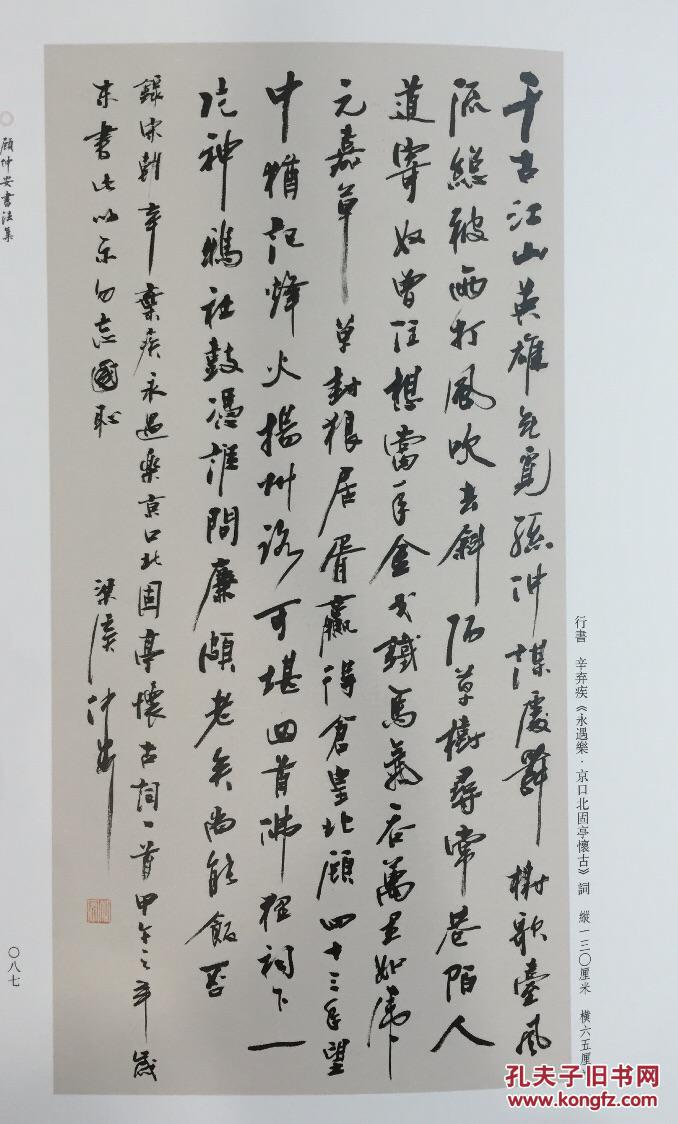 行書 辛弃疾《永遇樂·京口北固亭懷古》詞 縱一三〇厘米 橫六五厘
千古江山英雄无覓孫仲謀處舞榭歌臺風
流總被雨打風吹去斜陽草樹尋常巷陌人
道寄奴曾住想當年金戈鐵馬氣吞萬里如虎
元嘉草草封狼居胥贏得倉皇北顧四十三年望
中猶記烽火揚州路可堪回首佛狸祠下一
片神鴉社鼓憑誰問廉頗老矣尚能飯否
録宋朝辛棄疾永遇樂京口北固亭懷古詞一首甲午之年歲
末書此以示勿忘國恥
梁溪仲安
顧仲安書法集
〇八七
孔夫子旧书网
kongfz.com